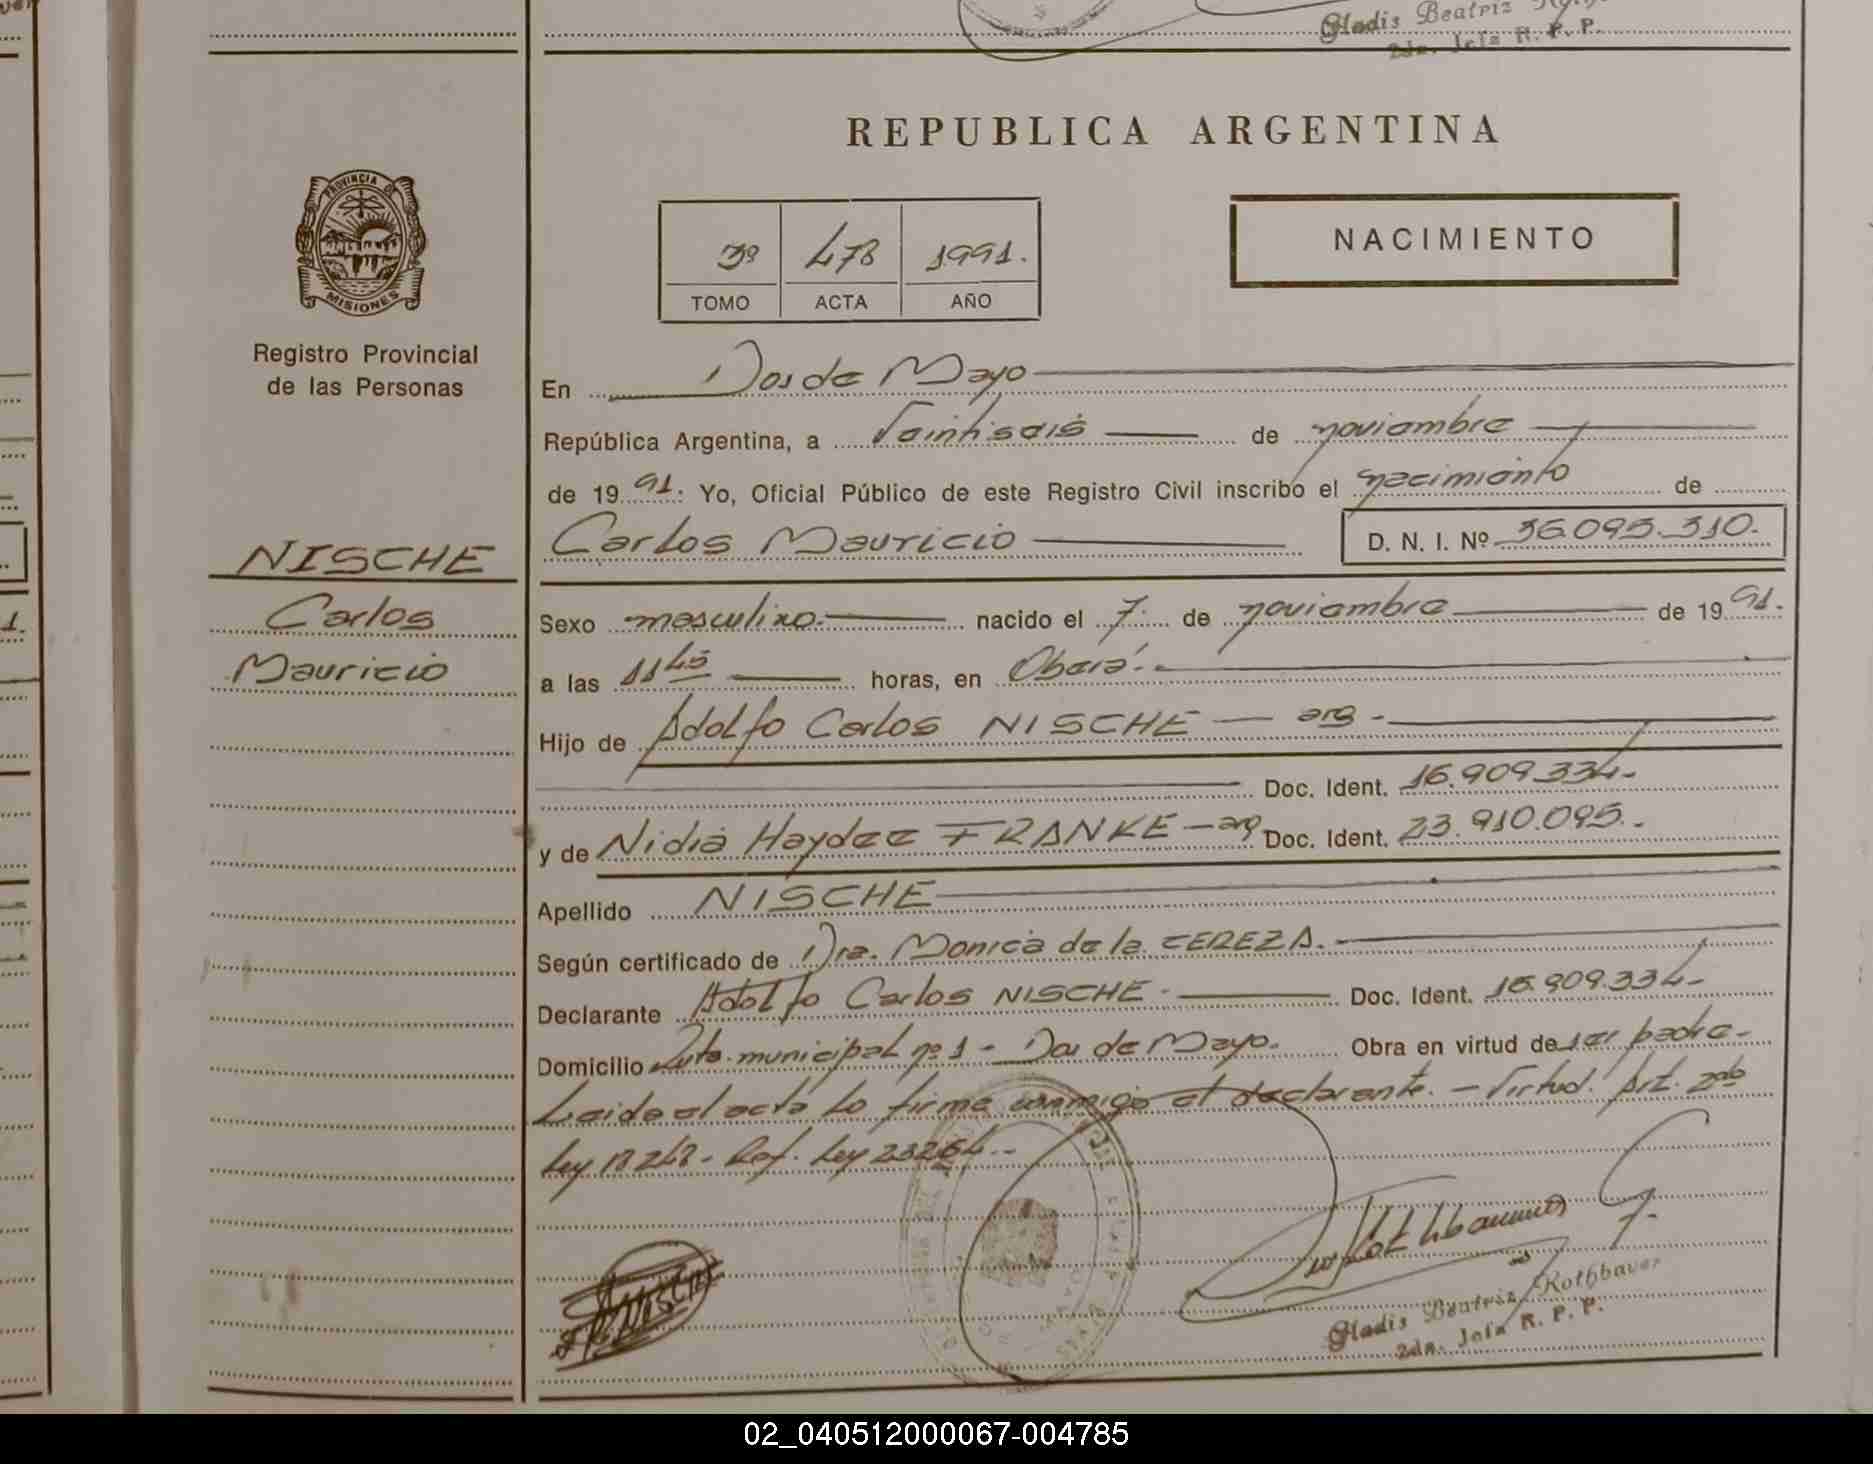 Gladis Beatriz
2da. Jefa R. P. P.
REPUBLICA ARGENTINA
PROVINCIA DE
MISIONES
3º 478 1991.
TOMO ACTA AÑO
NACIMIENTO
Registro Provincial
de las Personas
En Dos de Mayo
República Argentina, a Veintiseis de noviembre
de 19 91. Yo, Oficial Público de este Registro Civil inscribo el nacimiento de
Carlos Mauricio D. N. I. Nº 36.095.310.
NISCHE
Carlos
Mauricio
Sexo masculino. nacido el 7. de noviembre de 19 91.
a las 11 45 horas, en Oberá.
Hijo de Adolfo Carlos NISCHE — arg -
Doc. Ident. 16.909.334-
y de Nidia Haydee FRANKE — arg Doc. Ident. 23.910.095.-
Apellido NISCHE
Según certificado de Dra. Monica de la CEREZA.
Declarante Adolfo Carlos NISCHE - Doc. Ident. 16.909.334-
Domicilio municipal nº 1 - Dos de Mayo. Obra en virtud de ser padre-
Leida el acta lo firma conmigo el declarante. - Virtud. Art. 2do
Ley 18248 - Ref. Ley 23264.-
NISCHE
Gladis Beatriz Rothbauer
2da. Jefa R. P. P.
02_040512000067-004785